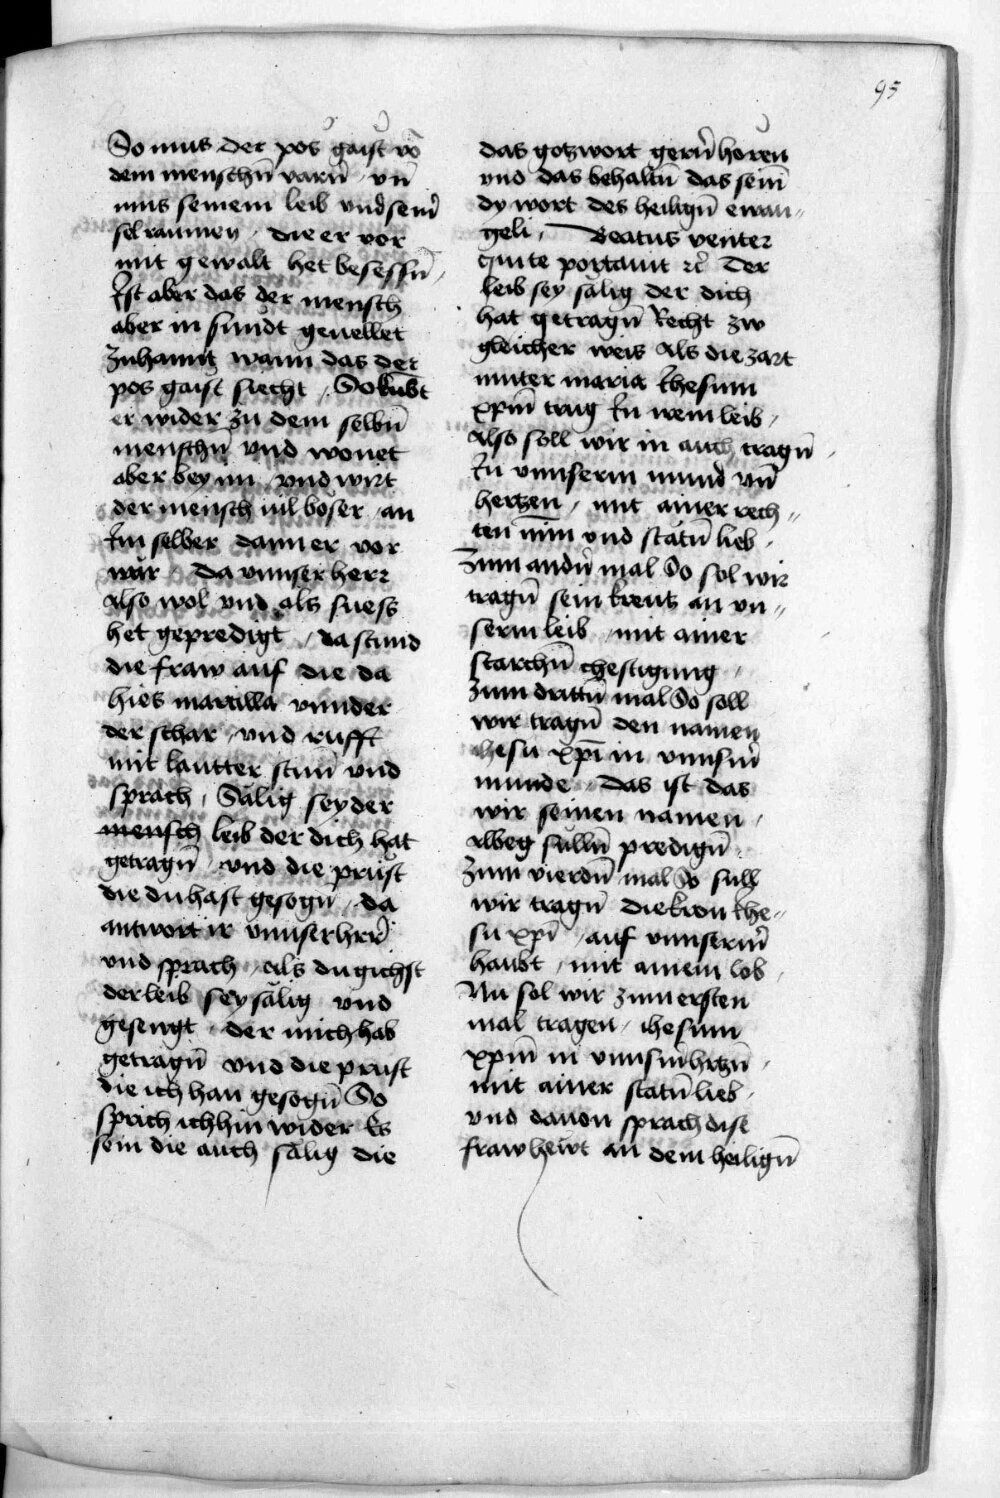 95
So mus der pos gaist vō
dem menschn̄ varn̄ / vn̄
mus seinem leib vnd sein̄
sel raumen / die er vor
mit gewalt het besessn̄ /
Ist aber das der mensch
aber in sundt geuellet
zuhannt wann das der
pos gaist siecht / So kūbt
er wider zu dem selbn̄
menschn̄ vnd wonet
aber bey im / vnd wirt
der mensch vil böser / an
Im selber dann er vor
wär / Da vnnser herr
also wol vnd als suess
het gepredigt / da stund
die fraw auf die da
hies marcilla vnnder
der schar / vnd rufft
mit lautter stim̄ vnd
sprach / Sälig sey der
mensch leib der dich hat
getragn̄ / vnd die prüst
die du hast gesogn̄ / da
antwort ir vnnser hrr̄
vnd sprach / als du gichst
der leib sey sälig vnd
gesengt / der mich hab
getragn̄ vnd die prust
die ich han gesogn̄ So
sprich ich hin wider Es
sein die auch sälig die
das gotzwort gern̄ horen
vnd das behaltn̄ das sein̄
dy wort des heilign̄ ewan=
geli / Beatus venter
qui te portauit ꝛc̄ Der
leib sey sälig der dich
hat getragn̄ Recht zw
gleicher weis als die zart
muter maria Ihesum
xpm̄ trug In irem leib /
Also soll wir in auch tragn̄ /
In vnnserm mund vn̄
hertzen / mit ainer rech=
ten mīn vnd stätn̄ lieb /
Zum andn̄ mal So sol wir
tragn̄ sein kreutz an vn=
serm leib / mit ainer
starchn̄ chestigung /
Zum drittn̄ mal So soll
wir tragn̄ den namen
ihesu xpī in vnnsm̄
munde / Das ist das
wir seinen namen /
alweg sülln̄ predign̄ /
Zum vierdn̄ mal So sull
wir tragn̄ die kron Ihe=
su xpī / auf vnnserm̄
haubt / mit ainem lob /
Nu sol wir zum ersten
mal tragen / ihesum
xpm̄ in vnnsm̄ hrtzn̄ /
mit ainer stätn̄ lieb /
vnd dauon sprach dise
fraw hewt an dem heilign̄